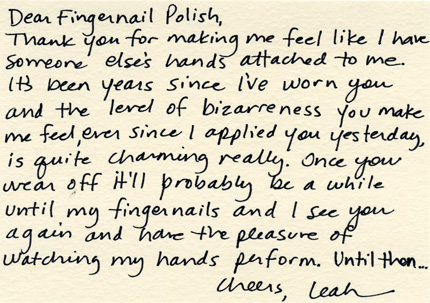 Dear Fingernail Polish,
Thank you for making me feel like I have
someone else's hands attached to me.
It's been years since I've worn you
and the level of bizarreness you make
me feel, ever since I applied you yesterday,
is quite charming really. Once you
wear off it'll probably be a while
until my fingernails and I see you
again and have the pleasure of
watching my hands perform. Until then...
Cheers, Leah